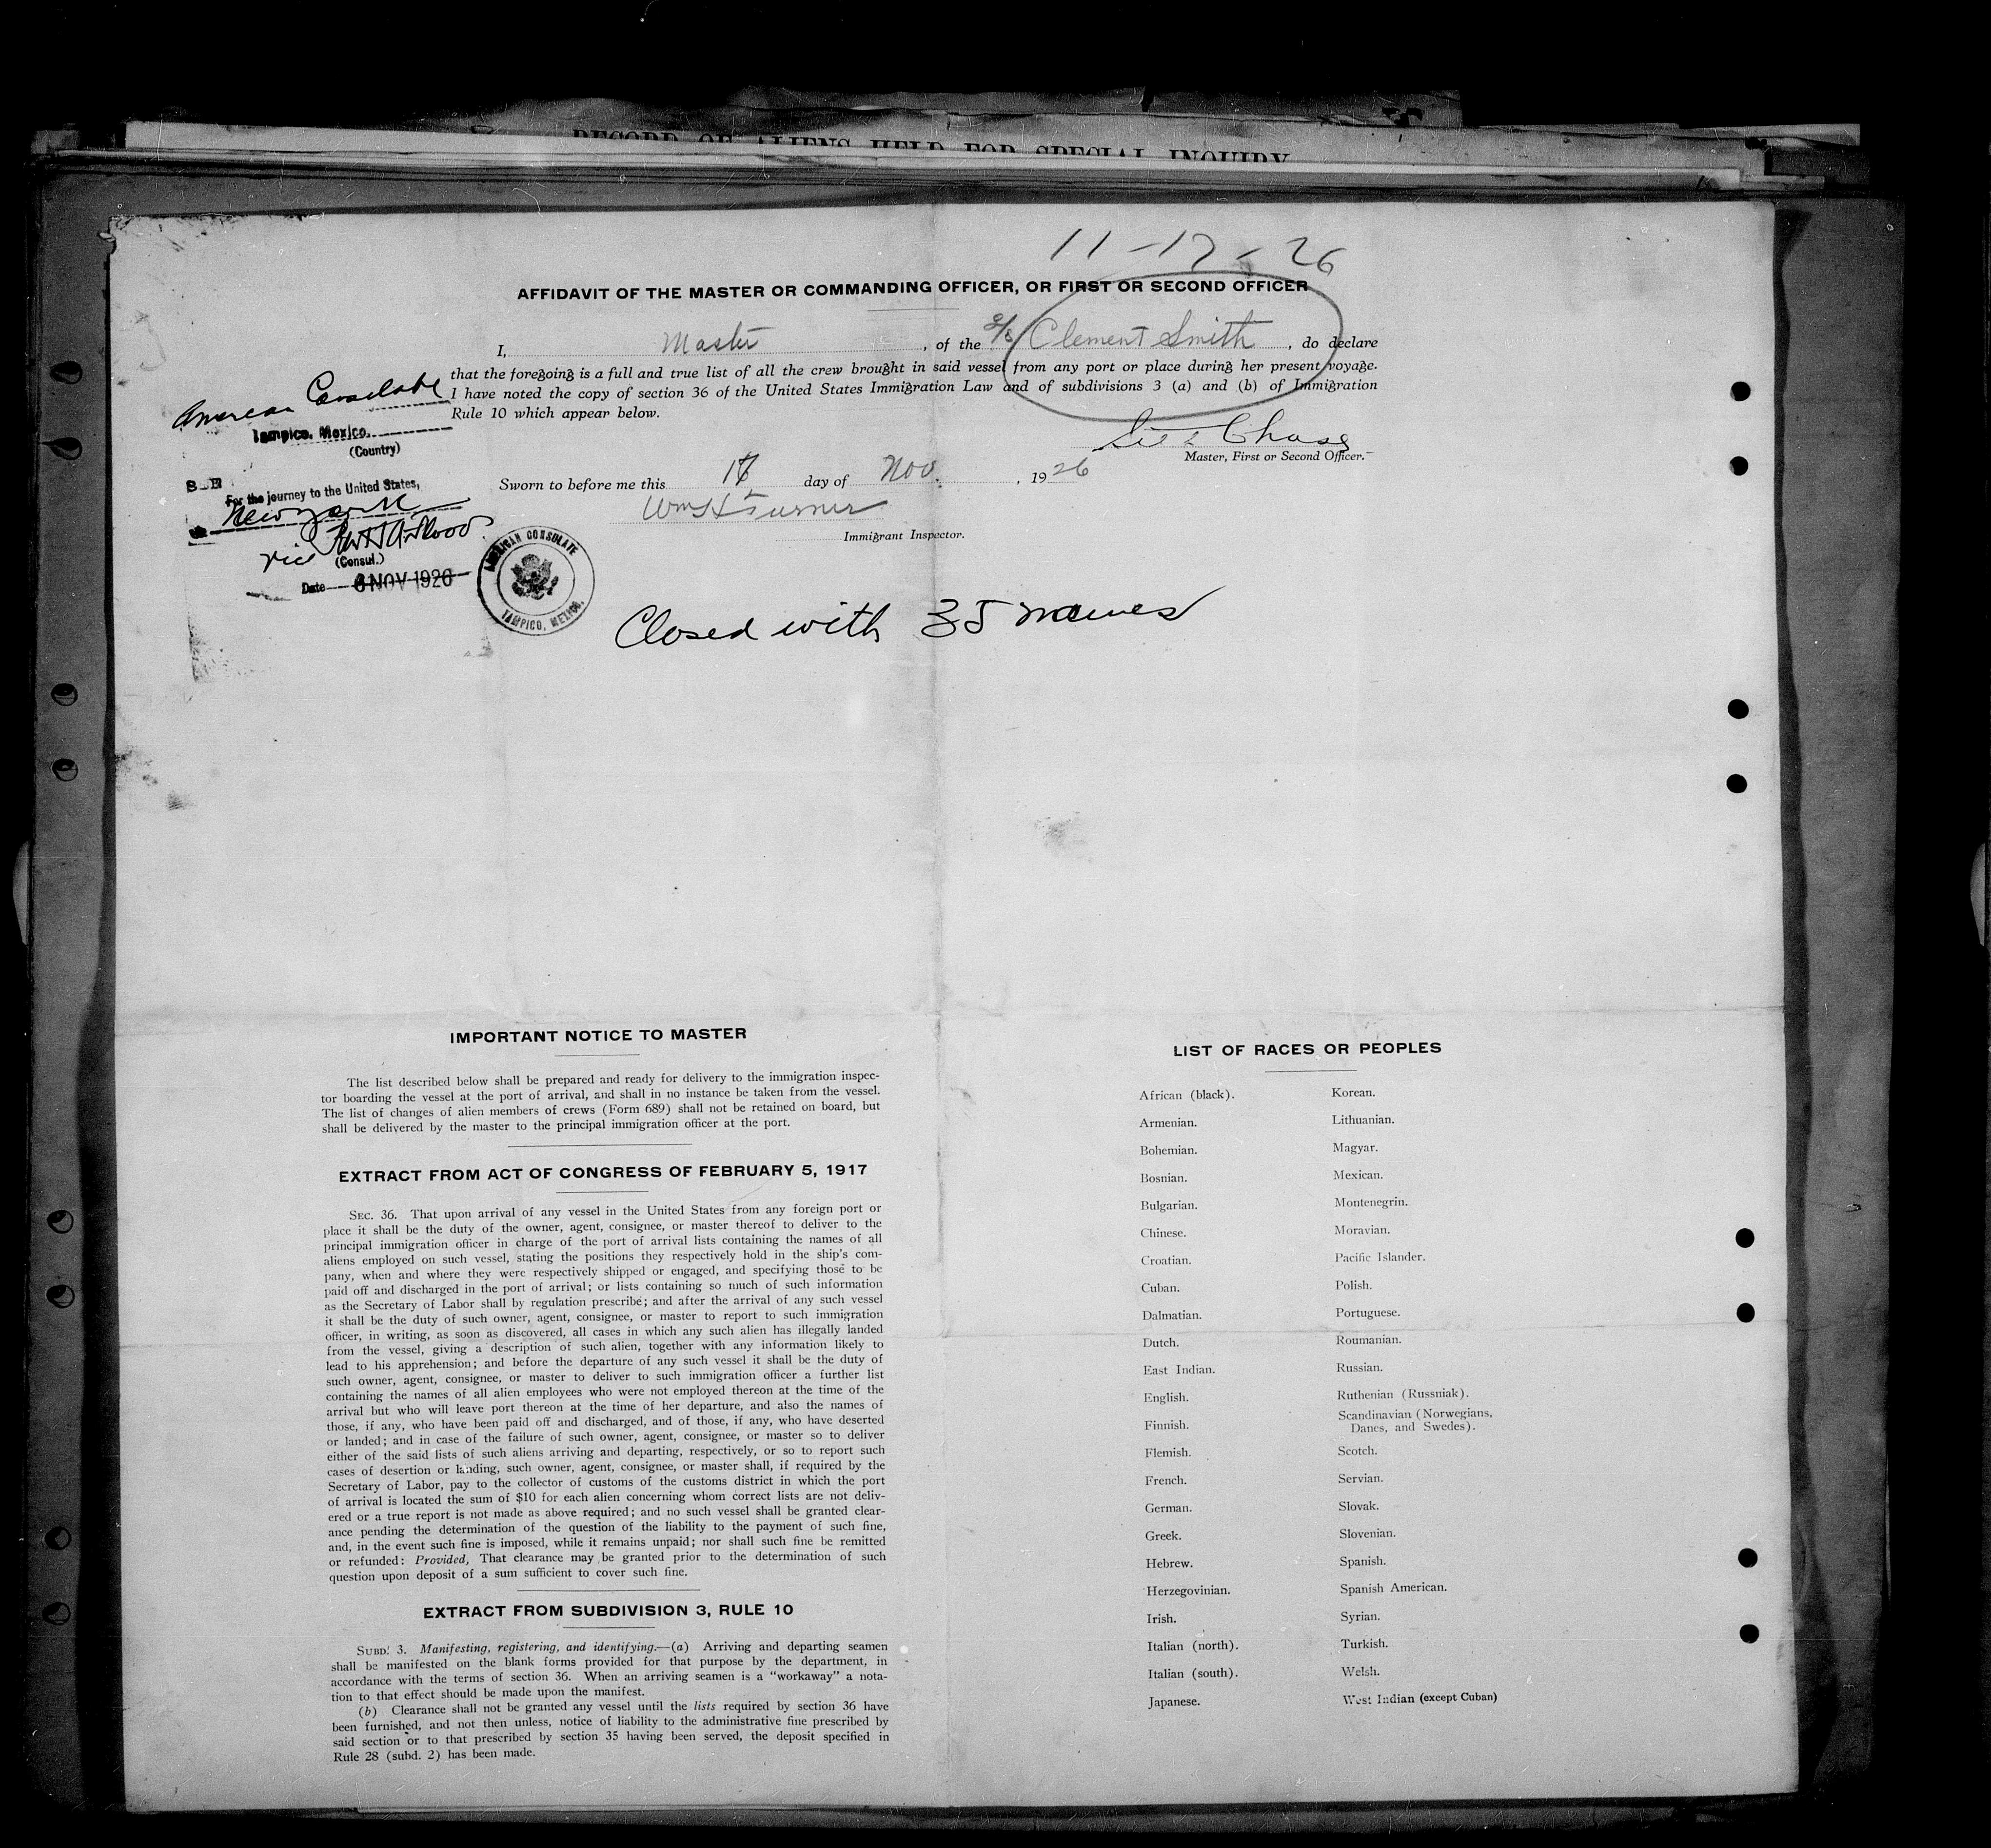 RECORD OF ALIENS HELD FOR SPECIAL INQUIRY
11-17-26
AFFIDAVIT OF THE MASTER OR COMMANDING OFFICER, OR FIRST OR SECOND OFFICER
I, Master, of the S/S Clement Smith, do declare
that the foregoing is a full and true list of all the crew brought in said vessel from any port or place during her present voyage.
I have noted the copy of section 36 of the United States Immigration Law and of subdivisions 3 (a) and (b) of Immigration
Rule 10 which appear below.
American Consulate
Tampico, Mexico.
(Country)
Chase
Master, First or Second Officer.
Sworn to before me this 17 day of Nov., 1926
Wm H Turner
Immigrant Inspector.
For the journey to the United States,
New York
Vice
(Consul.)
Date 6 NOV 1926
AMERICAN CONSULATE
TAMPICO, MEXICO.
Closed with 35 names
IMPORTANT NOTICE TO MASTER
The list described below shall be prepared and ready for delivery to the immigration inspec-
tor boarding the vessel at the port of arrival, and shall in no instance be taken from the vessel.
The list of changes of alien members of crews (Form 689) shall not be retained on board, but
shall be delivered by the master to the principal immigration officer at the port.
EXTRACT FROM ACT OF CONGRESS OF FEBRUARY 5, 1917
SEC. 36. That upon arrival of any vessel in the United States from any foreign port or
place it shall be the duty of the owner, agent, consignee, or master thereof to deliver to the
principal immigration officer in charge of the port of arrival lists containing the names of all
aliens employed on such vessel, stating the positions they respectively hold in the ship's com-
pany, when and where they were respectively shipped or engaged, and specifying those to be
paid off and discharged in the port of arrival; or lists containing so much of such information
as the Secretary of Labor shall by regulation prescribe; and after the arrival of any such vessel
it shall be the duty of such owner, agent, consignee, or master to report to such immigration
officer, in writing, as soon as discovered, all cases in which any such alien has illegally landed
from the vessel, giving a description of such alien, together with any information likely to
lead to his apprehension; and before the departure of any such vessel it shall be the duty of
such owner, agent, consignee, or master to deliver to such immigration officer a further list
containing the names of all alien employees who were not employed thereon at the time of the
arrival but who will leave port thereon at the time of her departure, and also the names of
those, if any, who have been paid off and discharged, and of those, if any, who have deserted
or landed; and in case of the failure of such owner, agent, consignee, or master so to deliver
either of the said lists of such aliens arriving and departing, respectively, or so to report such
cases of desertion or landing, such owner, agent, consignee, or master shall, if required by the
Secretary of Labor, pay to the collector of customs of the customs district in which the port
of arrival is located the sum of $10 for each alien concerning whom correct lists are not deliv-
ered or a true report is not made as above required; and no such vessel shall be granted clear-
ance pending the determination of the question of the liability to the payment of such fine,
and, in the event such fine is imposed, while it remains unpaid; nor shall such fine be remitted
or refunded: Provided, That clearance may be granted prior to the determination of such
question upon deposit of a sum sufficient to cover such fine.
EXTRACT FROM SUBDIVISION 3, RULE 10
SUBD. 3. Manifesting, registering, and identifying.—(a) Arriving and departing seamen
shall be manifested on the blank forms provided for that purpose by the department, in
accordance with the terms of section 36. When an arriving seamen is a "workaway" a nota-
tion to that effect should be made upon the manifest.
(b) Clearance shall not be granted any vessel until the lists required by section 36 have
been furnished, and not then unless, notice of liability to the administrative fine prescribed by
said section or to that prescribed by section 35 having been served, the deposit specified in
Rule 28 (subd. 2) has been made.
LIST OF RACES OR PEOPLES
African (black).
Armenian.
Bohemian.
Bosnian.
Bulgarian.
Chinese.
Croatian.
Cuban.
Dalmatian.
Dutch.
East Indian.
English.
Finnish.
Flemish.
French.
German.
Greek.
Hebrew.
Herzegovinian.
Irish.
Italian (north).
Italian (south).
Japanese.
Korean.
Lithuanian.
Magyar.
Mexican.
Montenegrin.
Moravian.
Pacific Islander.
Polish.
Portuguese.
Roumanian.
Russian.
Ruthenian (Russniak).
Scandinavian (Norwegians,
Danes, and Swedes).
Scotch.
Servian.
Slovak.
Slovenian.
Spanish.
Spanish American.
Syrian.
Turkish.
Welsh.
West Indian (except Cuban)